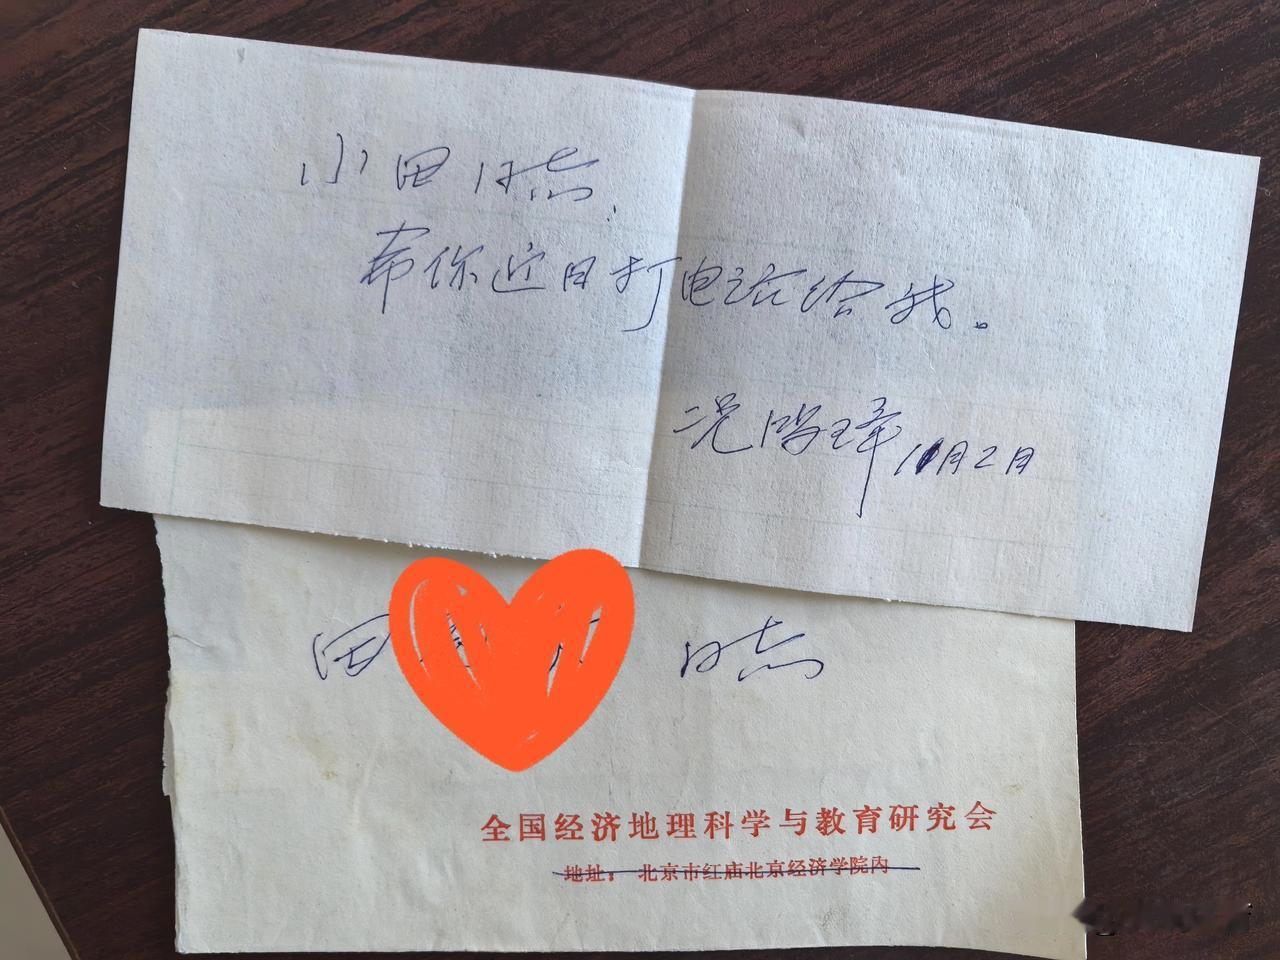 小田同志：
希你近日打电话给我。
况鸿璋 11月2日
田 同志
全国经济地理科学与教育研究会
地址：北京市红庙北京经济学院内